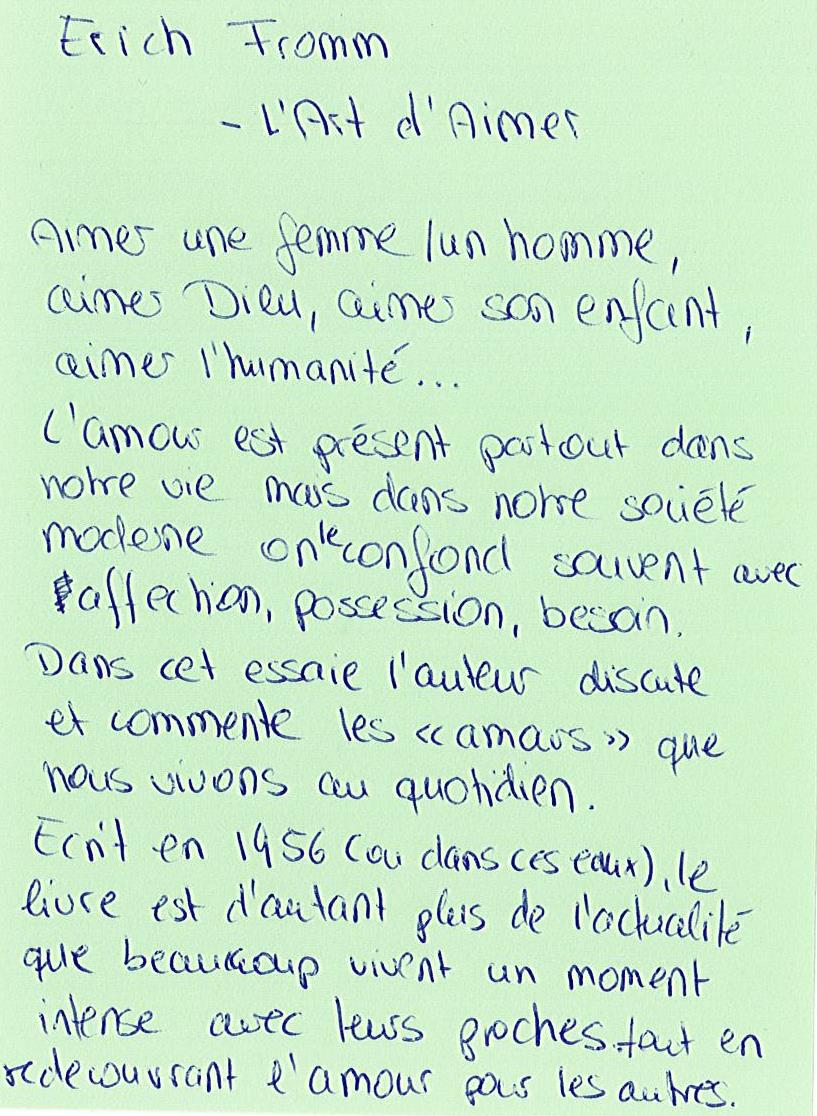 Erich Fromm
- L'Art d'Aimer
Aimer une femme / un homme,
aimer Dieu, aimer son enfant,
aimer l'humanité...
L'amour est présent partout dans
notre vie mais dans notre société
moderne on le confond souvent avec
affection, possession, besoin.
Dans cet essaie l'auteur discute
et commente les «amours» que
nous vivons au quotidien.
Ecrit en 1956 (ou dans ces eaux), le
livre est d'autant plus de l'actualité
que beaucoup vivent un moment
intense avec leurs proches tout en
redecouvrant l'amour pour les autres.